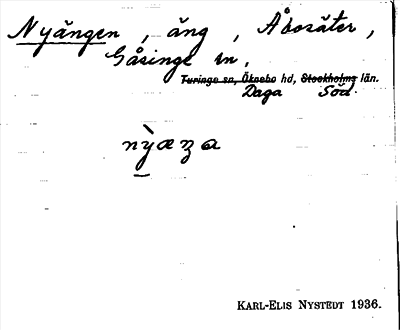 Nyängen, äng, Åbosäter,
Gåsinge sn,
Turinge sn, Öknebo hd, Stockholms län.
Daga Söd.
nỳæza
KARL-ELIS NYSTEDT 1936.